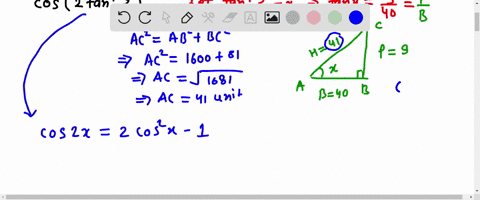 cos(2 tan
tanx = 9/40 = P/B
AC² = AB² + BC²
⇒ AC² = 1600 + 81
⇒ AC = √1681
⇒ AC = 41 unit
C
H = 41
P = 9
x
A
B
B=40
(
cos2x = 2 cos²x - 1